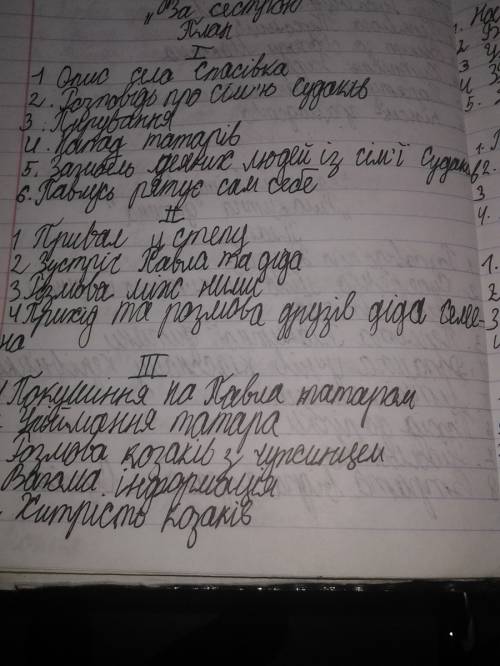 „За сестрою
План
I
1 Опис села Спасівка
2. Розповідь про сім'ю Судаків
3. Пірування
4. Напад татарів
5. Загибель деяких людей із сім'ї Судаків
6. Павлусь рятує сам себе
II
1 Привал у степу
2 Зустріч Павла та діда
3 Розмова між ними
4 Прихід та розмова друзів діда Семе-
на
III
Покушіння на Павла татаром
Упіймання татара
Розмова козаків з чужинцем
Вагома інформація
Хитрість козаків